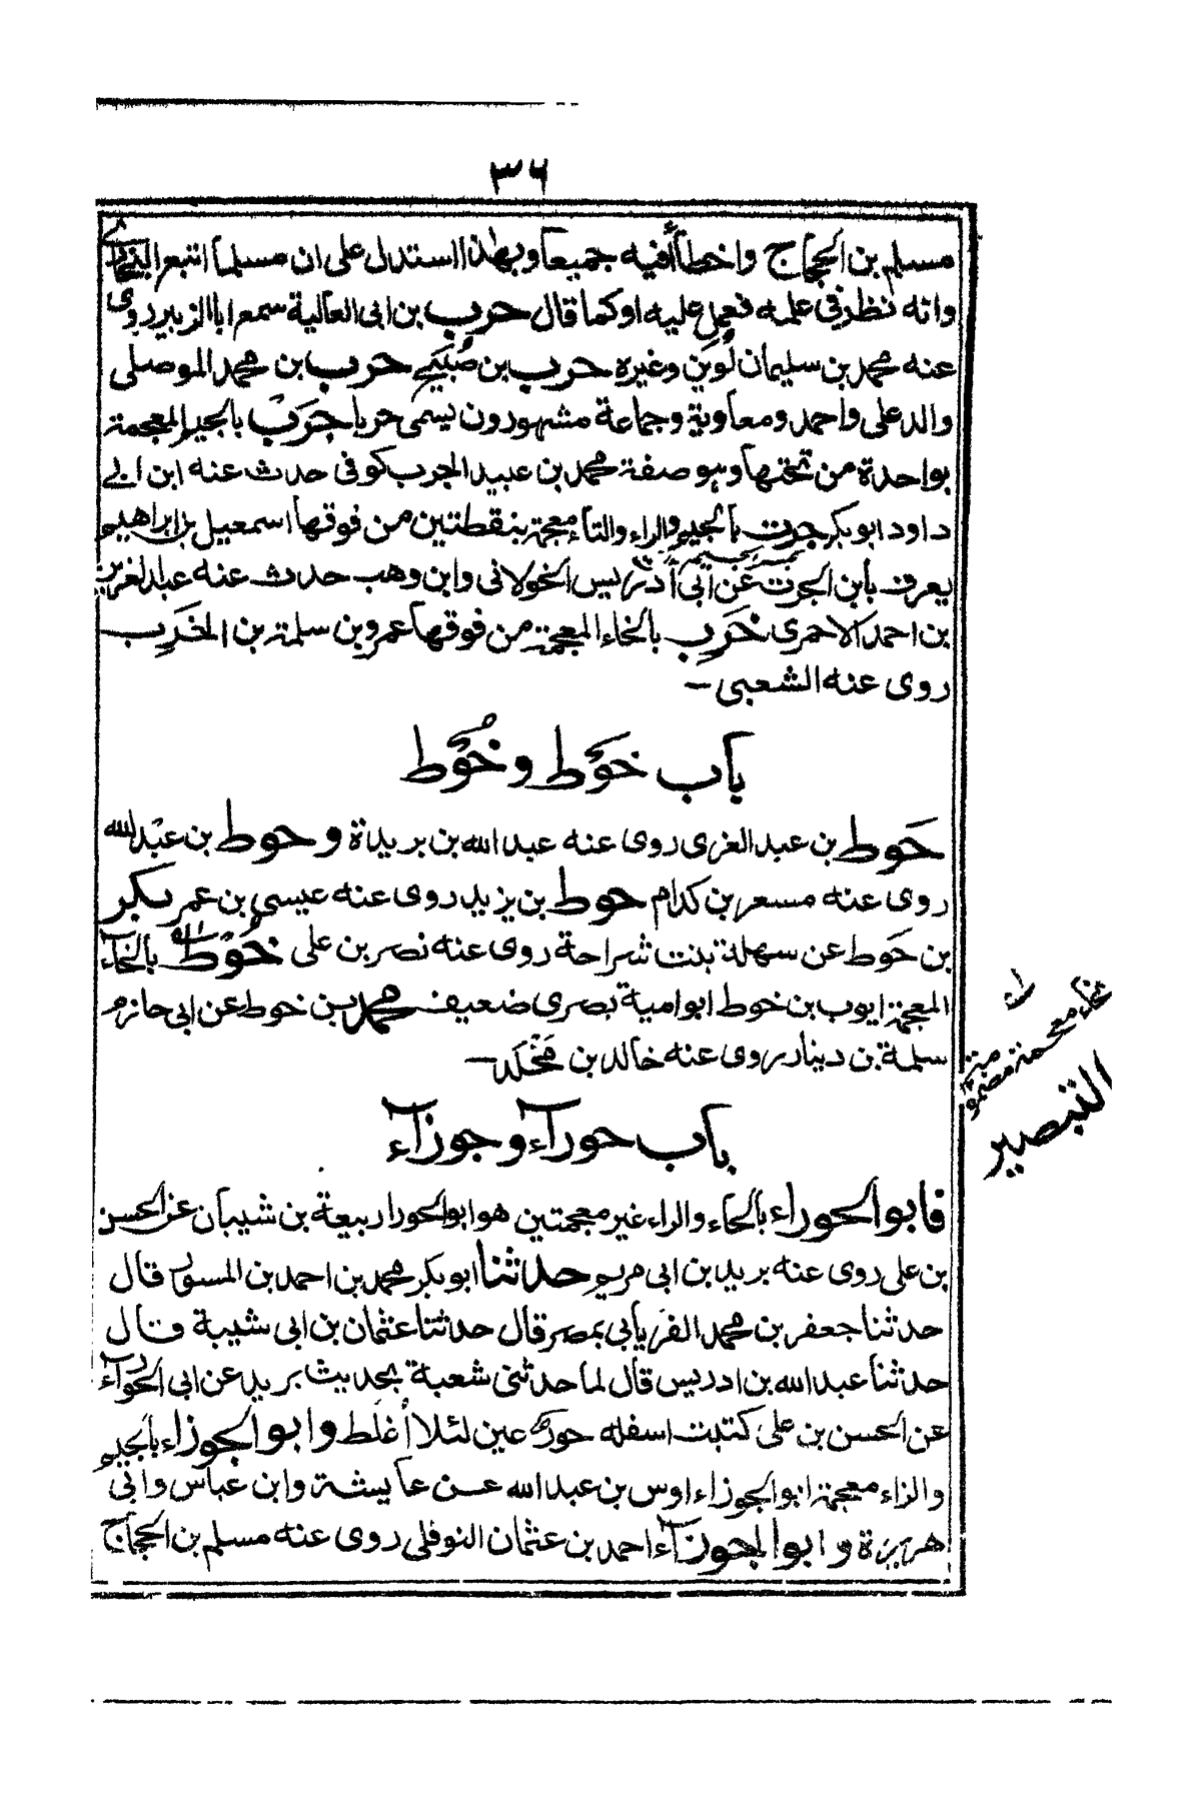 ٣٦
مسلم بن الحجاج واخطأ فيه جميعا وبهذا استدل على ان مسلما اتبع البخارى
وانه نظر فى علمه فعمل عليه او كما قال حرب بن ابى العالية سمع ابا الزبير روى
عنه محمد بن سليمان لوين وغيره حرب بن صُبَيح حرب بن محمد الموصلى
والد على واحمد ومعاوية وجماعة مشهورون يسمى حربا جَرَب بالجيم المعجمة
بواحدة من تحتها وهو صفة محمد بن عبيد الجرب كوفى حدث عنه ابن ابى
داود ابو بكر جرت بالجيم والراء والتاء معجمة بنقطتين من فوقها اسمعيل بن ابراهيم
يعرف بابن الجرت عن ابى ادريس الخولانى وابن وهب حدث عنه عبد العزيز
بن احمد الاحمرى خَرِب بالخاء المعجمة من فوقها عمرو بن سلمة بن الخَرِب
روى عنه الشعبى —
باب حَوط و خُوط
حَوط بن عبد العزى روى عنه عبد الله بن بريدة و حوط بن عبد الله
روى عنه مسعر بن كدام حوط بن يزيد روى عنه عيسى بن عمر بكر
بن حَوط عن سهلة بنت شراحة روى عنه نصر بن على خُوط بالخاء
المعجمة ايوب بن خوط ابو امية بصرى ضعيف محمد بن خوط عن ابى حازم
سلمة بن دينار روى عنه خالد بن مَخْلَد —
بخاء معجمة مضمومة
التبصير
باب حوراء و جوزاء
فابو الحوراء بالحاء والراء غير معجمتين هو ابو الحورا ربيعة بن شيبان عن الحسن
بن على روى عنه بريد بن ابى مريم حدثنا ابو بكر محمد بن احمد بن المسور قال
حدثنا جعفر بن محمد الفريابى بمصر قال حدثنا عثمان بن ابى شيبة قال
حدثنا عبد الله بن ادريس قال لما حدثنى شعبة بحديث بريد عن ابى الحوراء
عن الحسن بن على كتبت اسفله حور عين لئلا أغلط وابو الجوزاء بالجيم
والزاء معجمة ابو الجوزاء اوس بن عبد الله عن عايشة وابن عباس وابى
هريرة و ابو الجوزاء احمد بن عثمان النوفلى روى عنه مسلم بن الحجاج